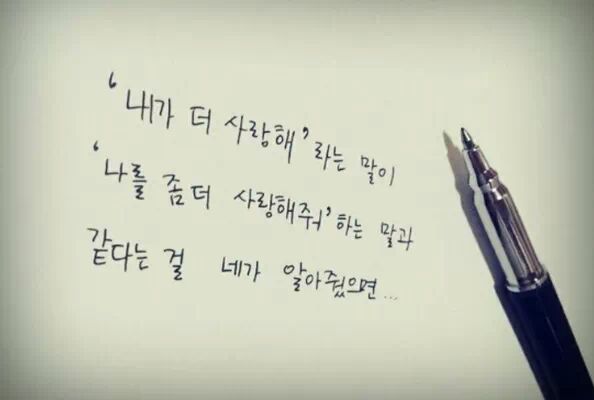 '내가 더 사랑해' 라는 말이
'나를 좀 더 사랑해줘' 하는 말과
같다는 걸 네가 알아줬으면...